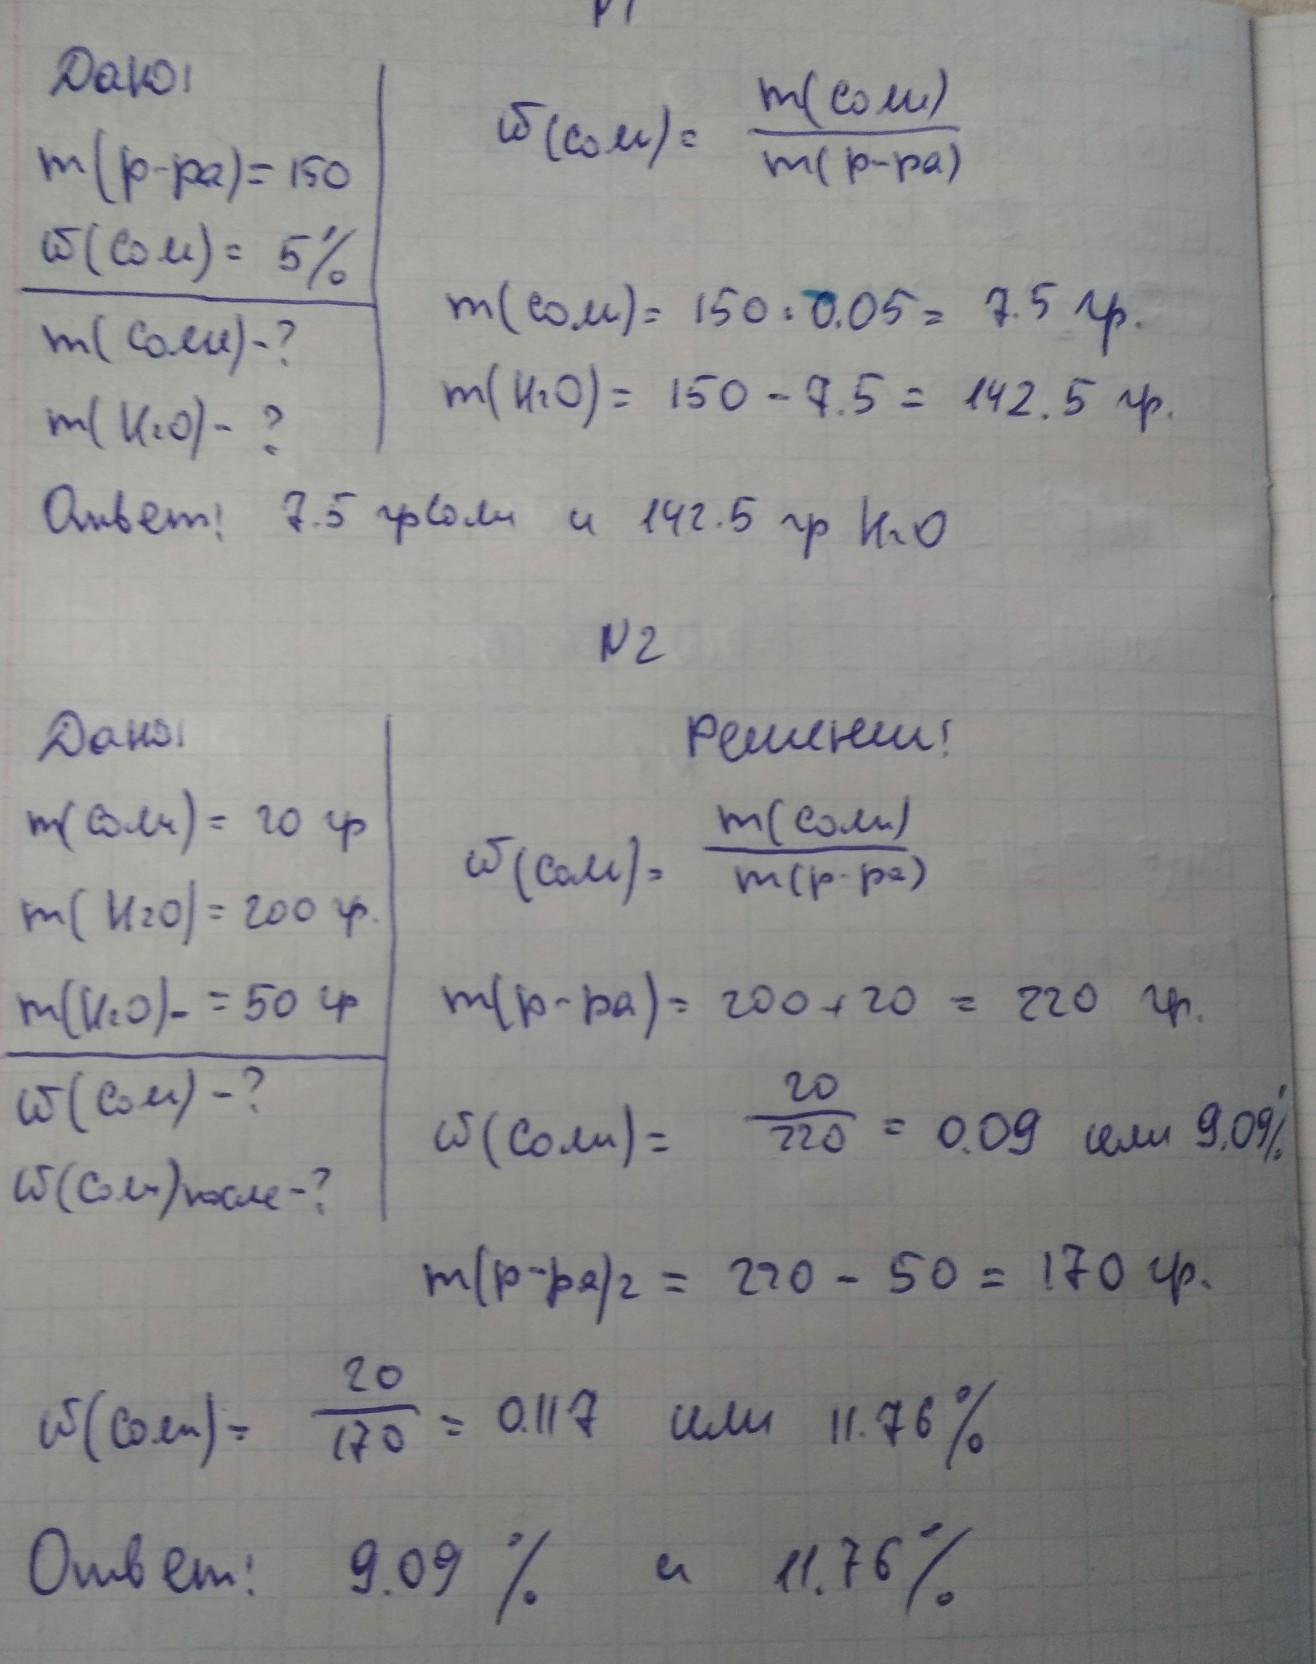 N1
Дано:
m(р-ра) = 150
ω(соли) = 5%
m(соли) - ?
m(H2O) - ?
ω(соли) = m(соли) / m(р-ра)
m(соли) = 150 · 0.05 = 7.5 гр.
m(H2O) = 150 - 7.5 = 142.5 гр.
Ответ: 7.5 гр соли и 142.5 гр H2O
N2
Дано:
m(соли) = 20 гр
m(H2O) = 200 гр.
m(H2O)- = 50 гр
ω(соли) - ?
ω(соли)после - ?
Решение:
ω(соли) = m(соли) / m(р-ра)
m(р-ра) = 200 + 20 = 220 гр.
ω(соли) = 20 / 220 = 0.09 или 9.09%
m(р-ра)2 = 220 - 50 = 170 гр.
ω(соли) = 20 / 170 = 0.117 или 11.76%
Ответ: 9.09 % и 11.76%